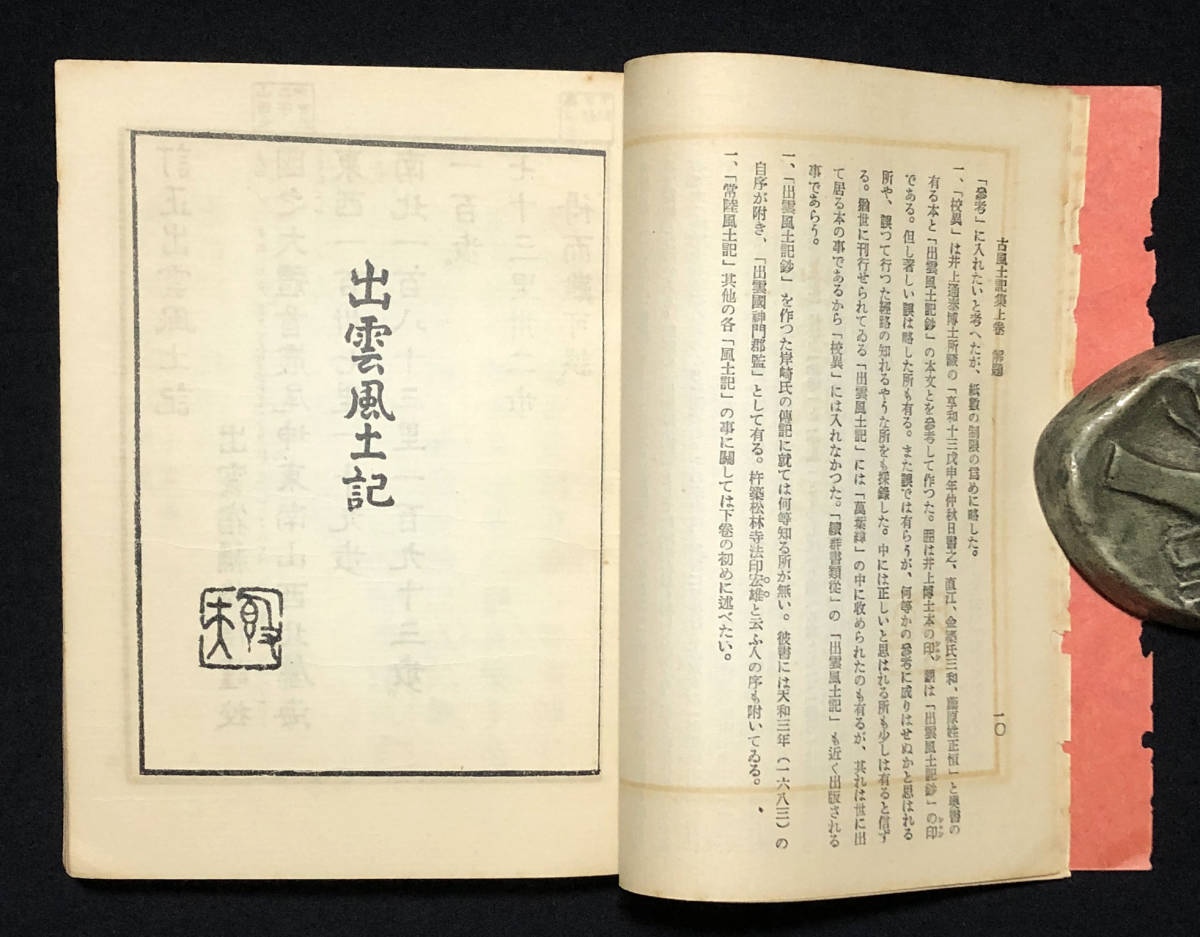 古風土記集上卷　解題
一〇
「參考」に入れたいと考へたが、紙數の制限の爲めに略した。
一、「校異」は井上通泰博士所藏の「享和十三戊申年仲秋日書之、直江、金築氏三和、藤原姓正恒」と奥書の
有る本と「出雲風土記鈔」の本文とを參考して作つた。囲は井上博士本の印、は「出雲風土記鈔」の印
である。但し著しい誤は略した所も有る。また誤では有らうが、何等かの參考に成りはせぬかと思はれる
所や、誤つて行つた經路の知れるやうな所をも採錄した。中には正しいと思はれる所も少しは有ると信ず
る。猶世に刊行せられてゐる「出雲風土記」には「萬葉緯」の中に收められたのも有るが、其れは世に出
て居る本の事であるから「校異」には入れなかつた。「續群書類從」の「出雲風土記」も近く出版される
事であらう。
一、「出雲風土記鈔」を作つた岸崎氏の傳記に就ては何等知る所が無い。彼書には天和三年（一六八三）の
自序が附き、「出雲國神門郡監」として有る。杵築松林寺法印宏雄と云ふ人の序も附いてゐる。
一、「常陸風土記」其他の各「風土記」の事に關しては下卷の初めに述べたい。
出雲風土記